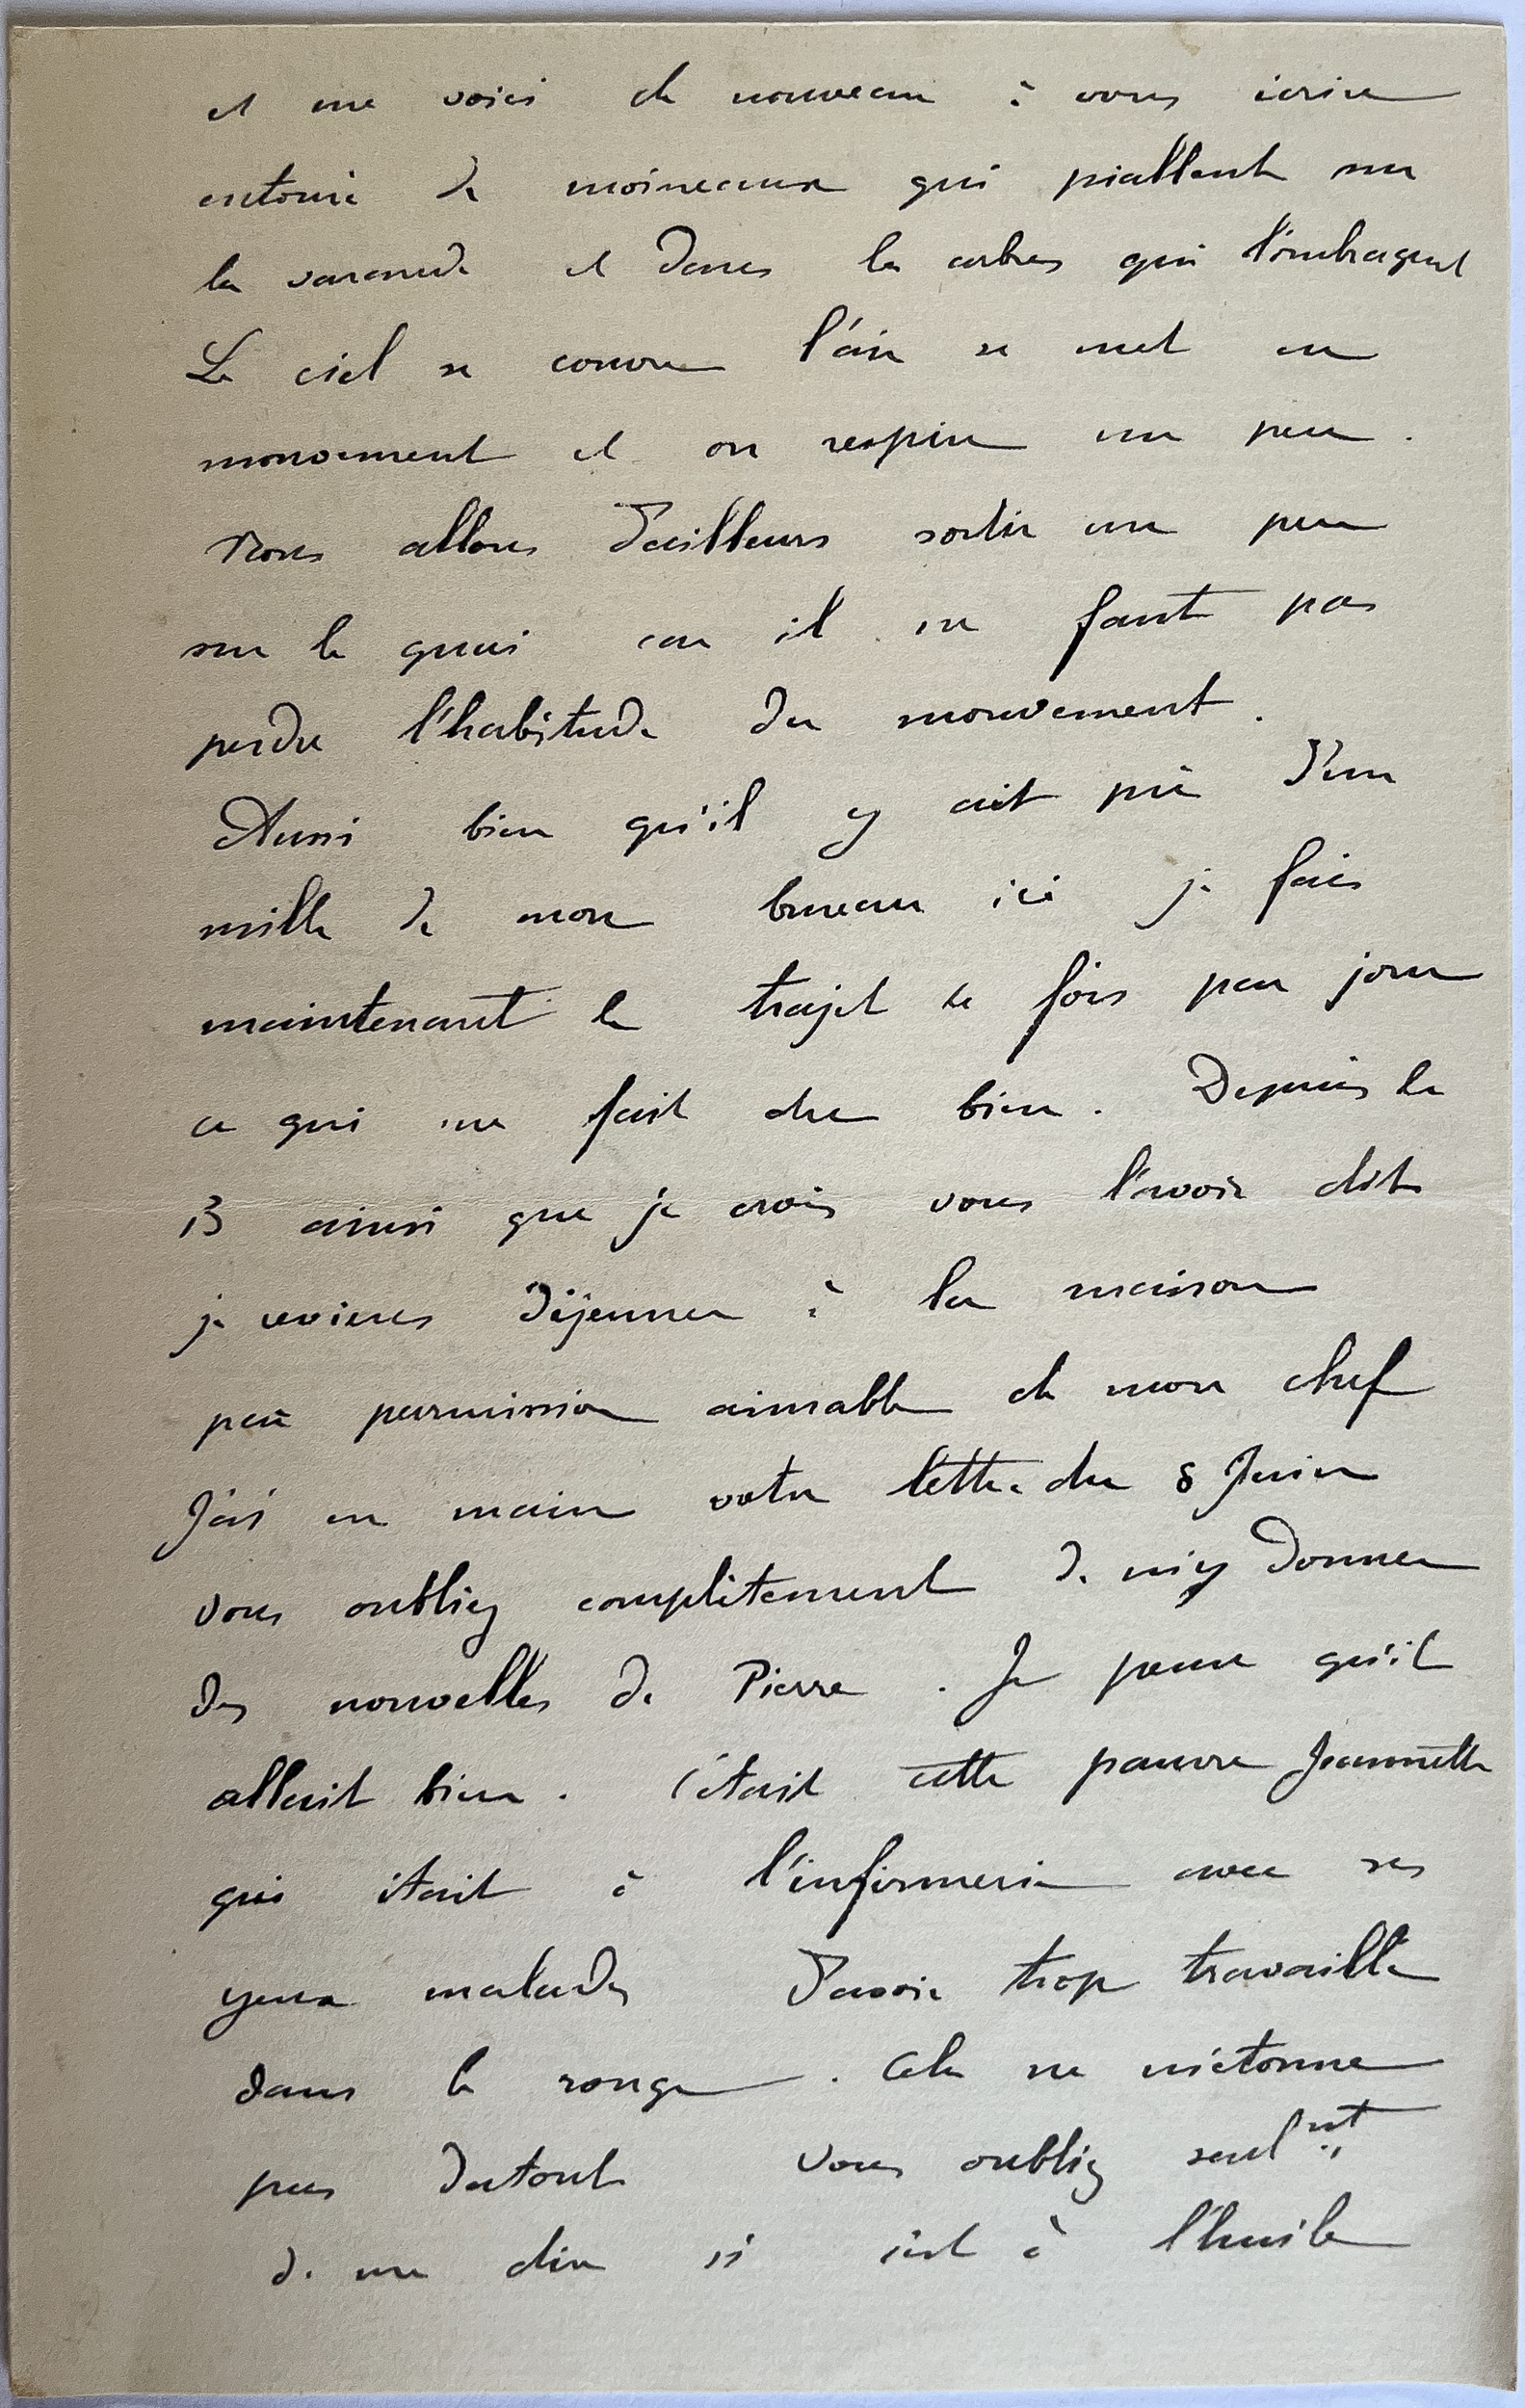 et me voici de nouveau à vous écrire
entouré de moineaux qui piaillent sur
la varande et dans les arbres qui l'ombragent
Le ciel se couvre l'air se met en
mouvement et on respire un peu.
Nous allons d'ailleurs sortir un peu
sur le quai car il ne faut pas
perdre l'habitude du mouvement.
Aussi bien qu'il y ait près d'un
mille de mon bureau ici je fais
maintenant le trajet 4 fois par jour
ce qui me fait du bien. Depuis le
13 ainsi que je crois vous l'avoir dit
je reviens déjeuner à la maison
par permission aimable de mon chef
J'ai en main votre lettre du 8 Juin
vous oubliez complètement de m'y donner
des nouvelles de Pierre. Je pense qu'il
allait bien. C'était cette pauvre Jeannette
qui était à l'infirmerie avec ses
yeux malades d'avoir trop travaillé
dans le rouge. Cela ne m'étonne
pas dutout Vous oubliez seulmt
de me dire si c'est à l'huile